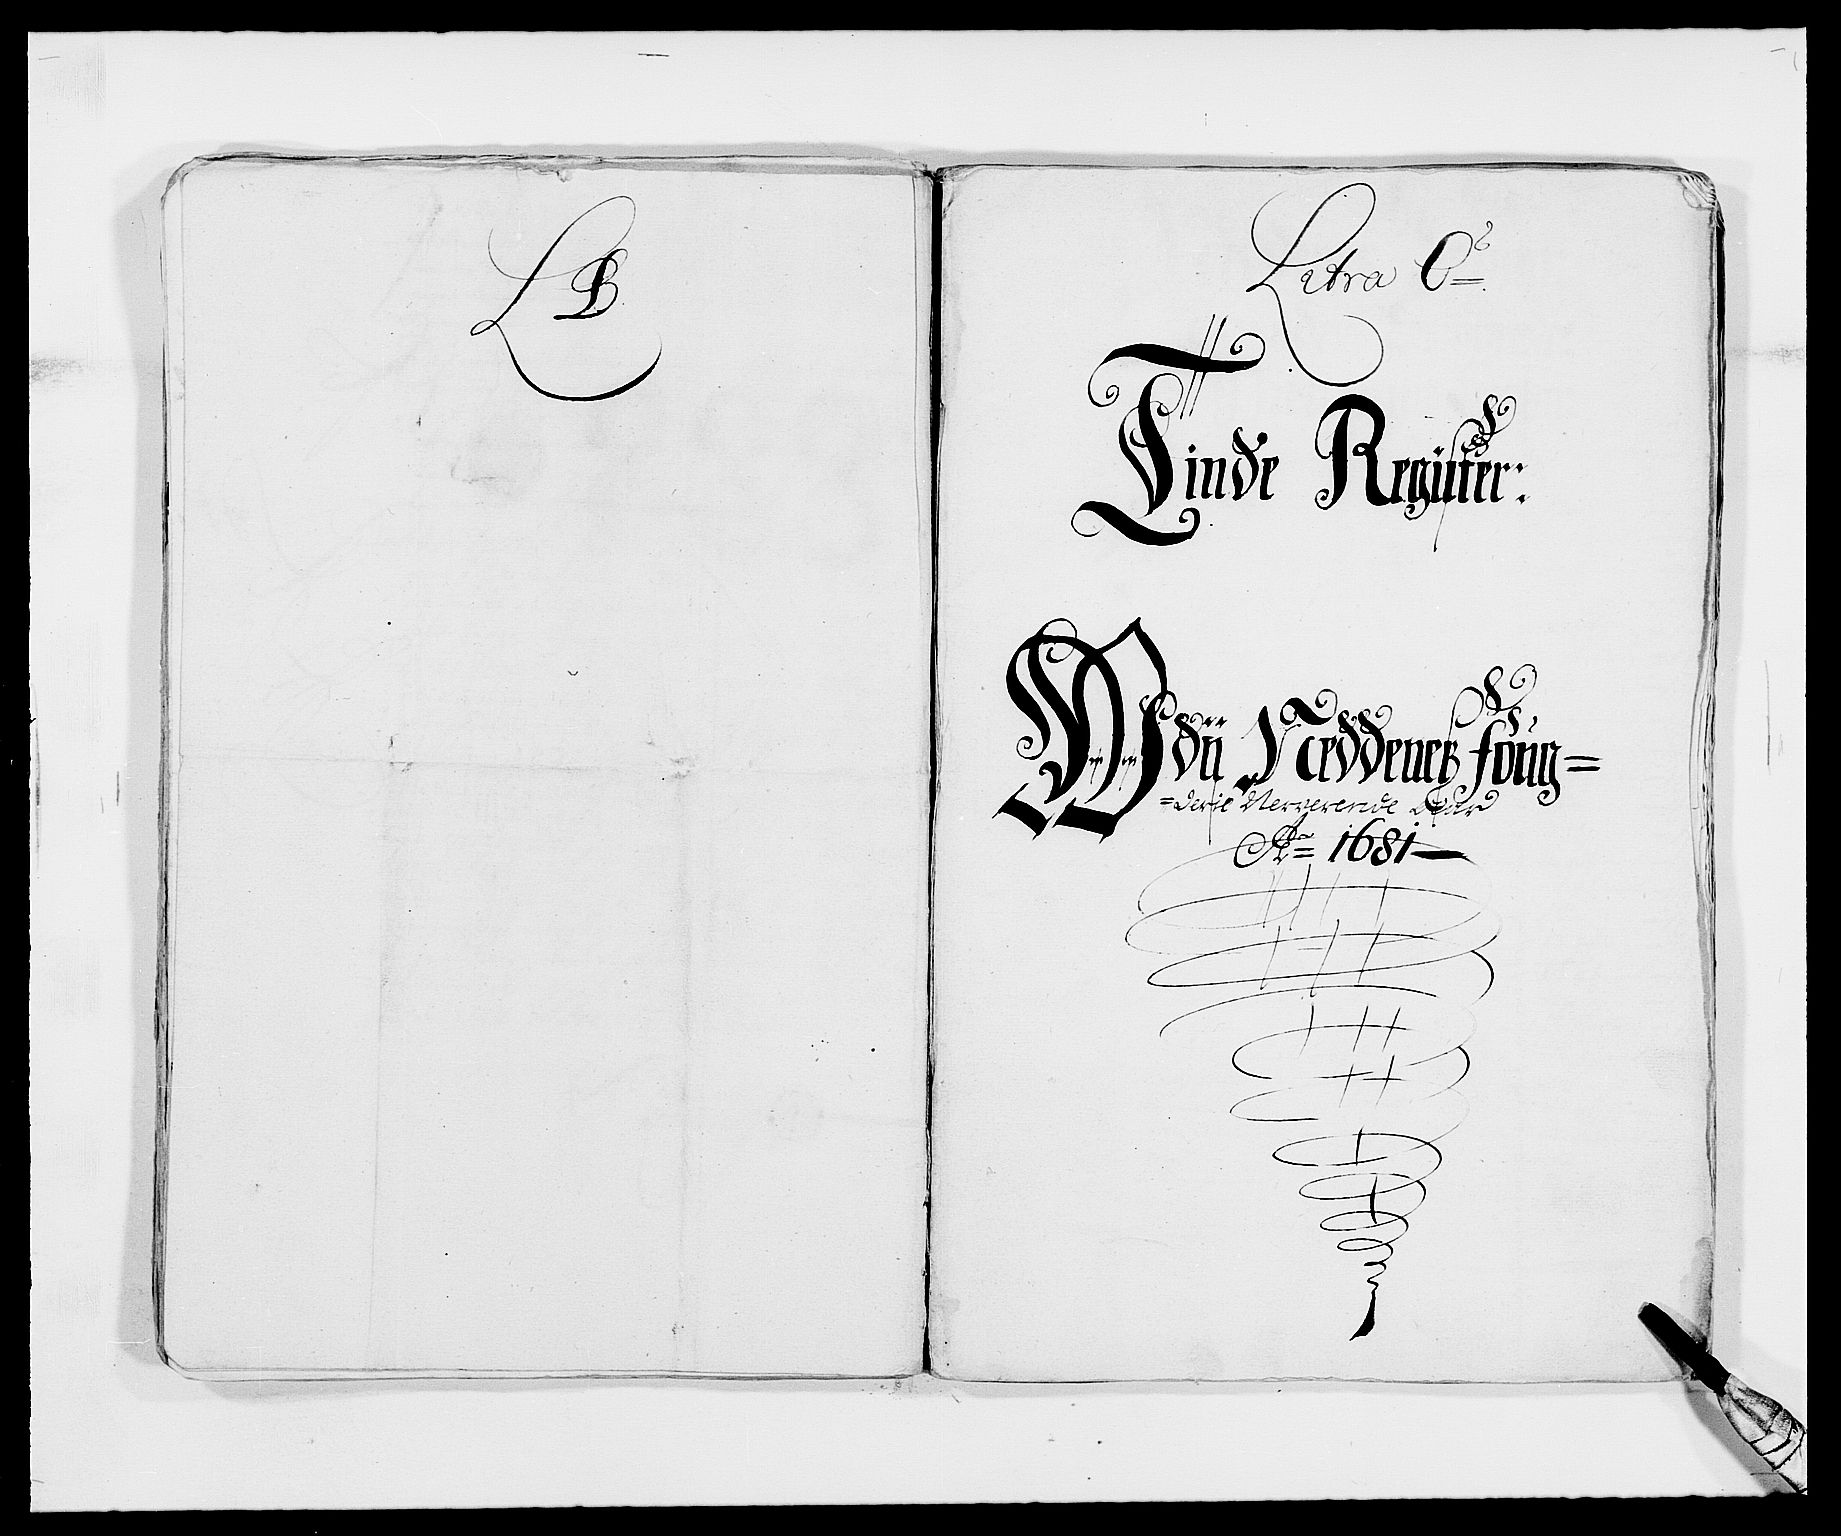 L B
Litra C
Tinde Register:
Offuer Neddenes foug=
=derie Nerverende Aar
Ao 1681